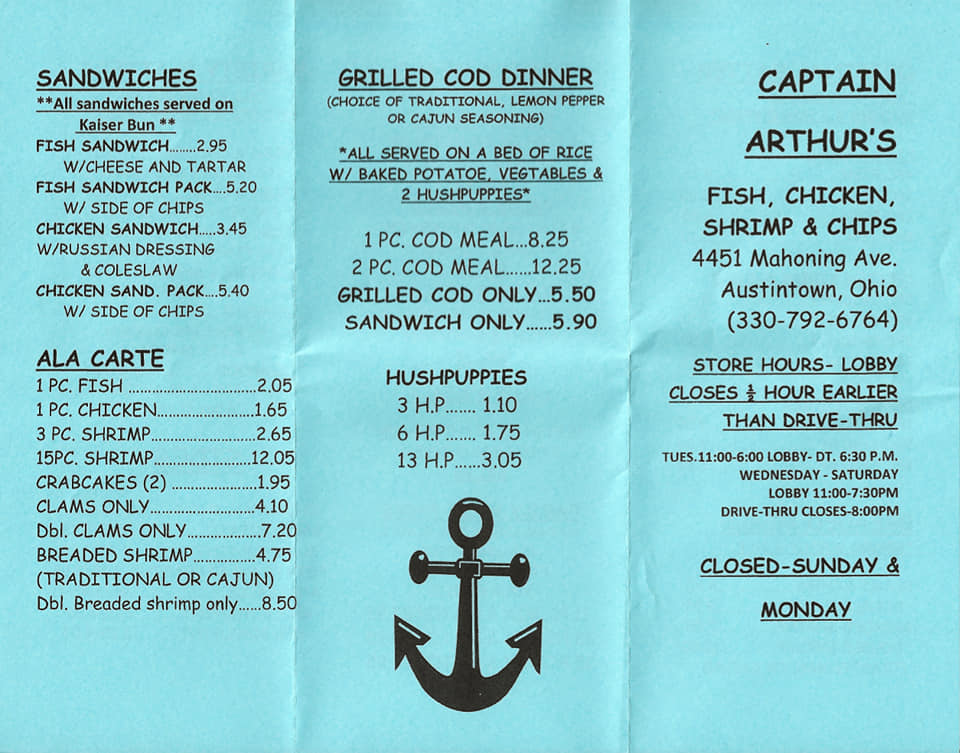 SANDWICHES
**All sandwiches served on
Kaiser Bun **
FISH SANDWICH........2.95
W/CHEESE AND TARTAR
FISH SANDWICH PACK....5.20
W/ SIDE OF CHIPS
CHICKEN SANDWICH.....3.45
W/RUSSIAN DRESSING
& COLESLAW
CHICKEN SAND. PACK....5.40
W/ SIDE OF CHIPS
ALA CARTE
1 PC. FISH ..............................2.05
1 PC. CHICKEN.......................1.65
3 PC. SHRIMP........................2.65
15PC. SHRIMP.......................12.05
CRABCAKES (2) ....................1.95
CLAMS ONLY.........................4.10
Dbl. CLAMS ONLY...................7.20
BREADED SHRIMP................4.75
(TRADITIONAL OR CAJUN)
Dbl. Breaded shrimp only......8.50
GRILLED COD DINNER
(CHOICE OF TRADITIONAL, LEMON PEPPER
OR CAJUN SEASONING)
*ALL SERVED ON A BED OF RICE
W/ BAKED POTATOE, VEGTABLES &
2 HUSHPUPPIES*
1 PC. COD MEAL...8.25
2 PC. COD MEAL......12.25
GRILLED COD ONLY...5.50
SANDWICH ONLY......5.90
HUSHPUPPIES
3 H.P....... 1.10
6 H.P....... 1.75
13 H.P......3.05
CAPTAIN
ARTHUR'S
FISH, CHICKEN,
SHRIMP & CHIPS
4451 Mahoning Ave.
Austintown, Ohio
(330-792-6764)
STORE HOURS- LOBBY
CLOSES ½ HOUR EARLIER
THAN DRIVE-THRU
TUES.11:00-6:00 LOBBY- DT. 6:30 P.M.
WEDNESDAY - SATURDAY
LOBBY 11:00-7:30PM
DRIVE-THRU CLOSES-8:00PM
CLOSED-SUNDAY &
MONDAY